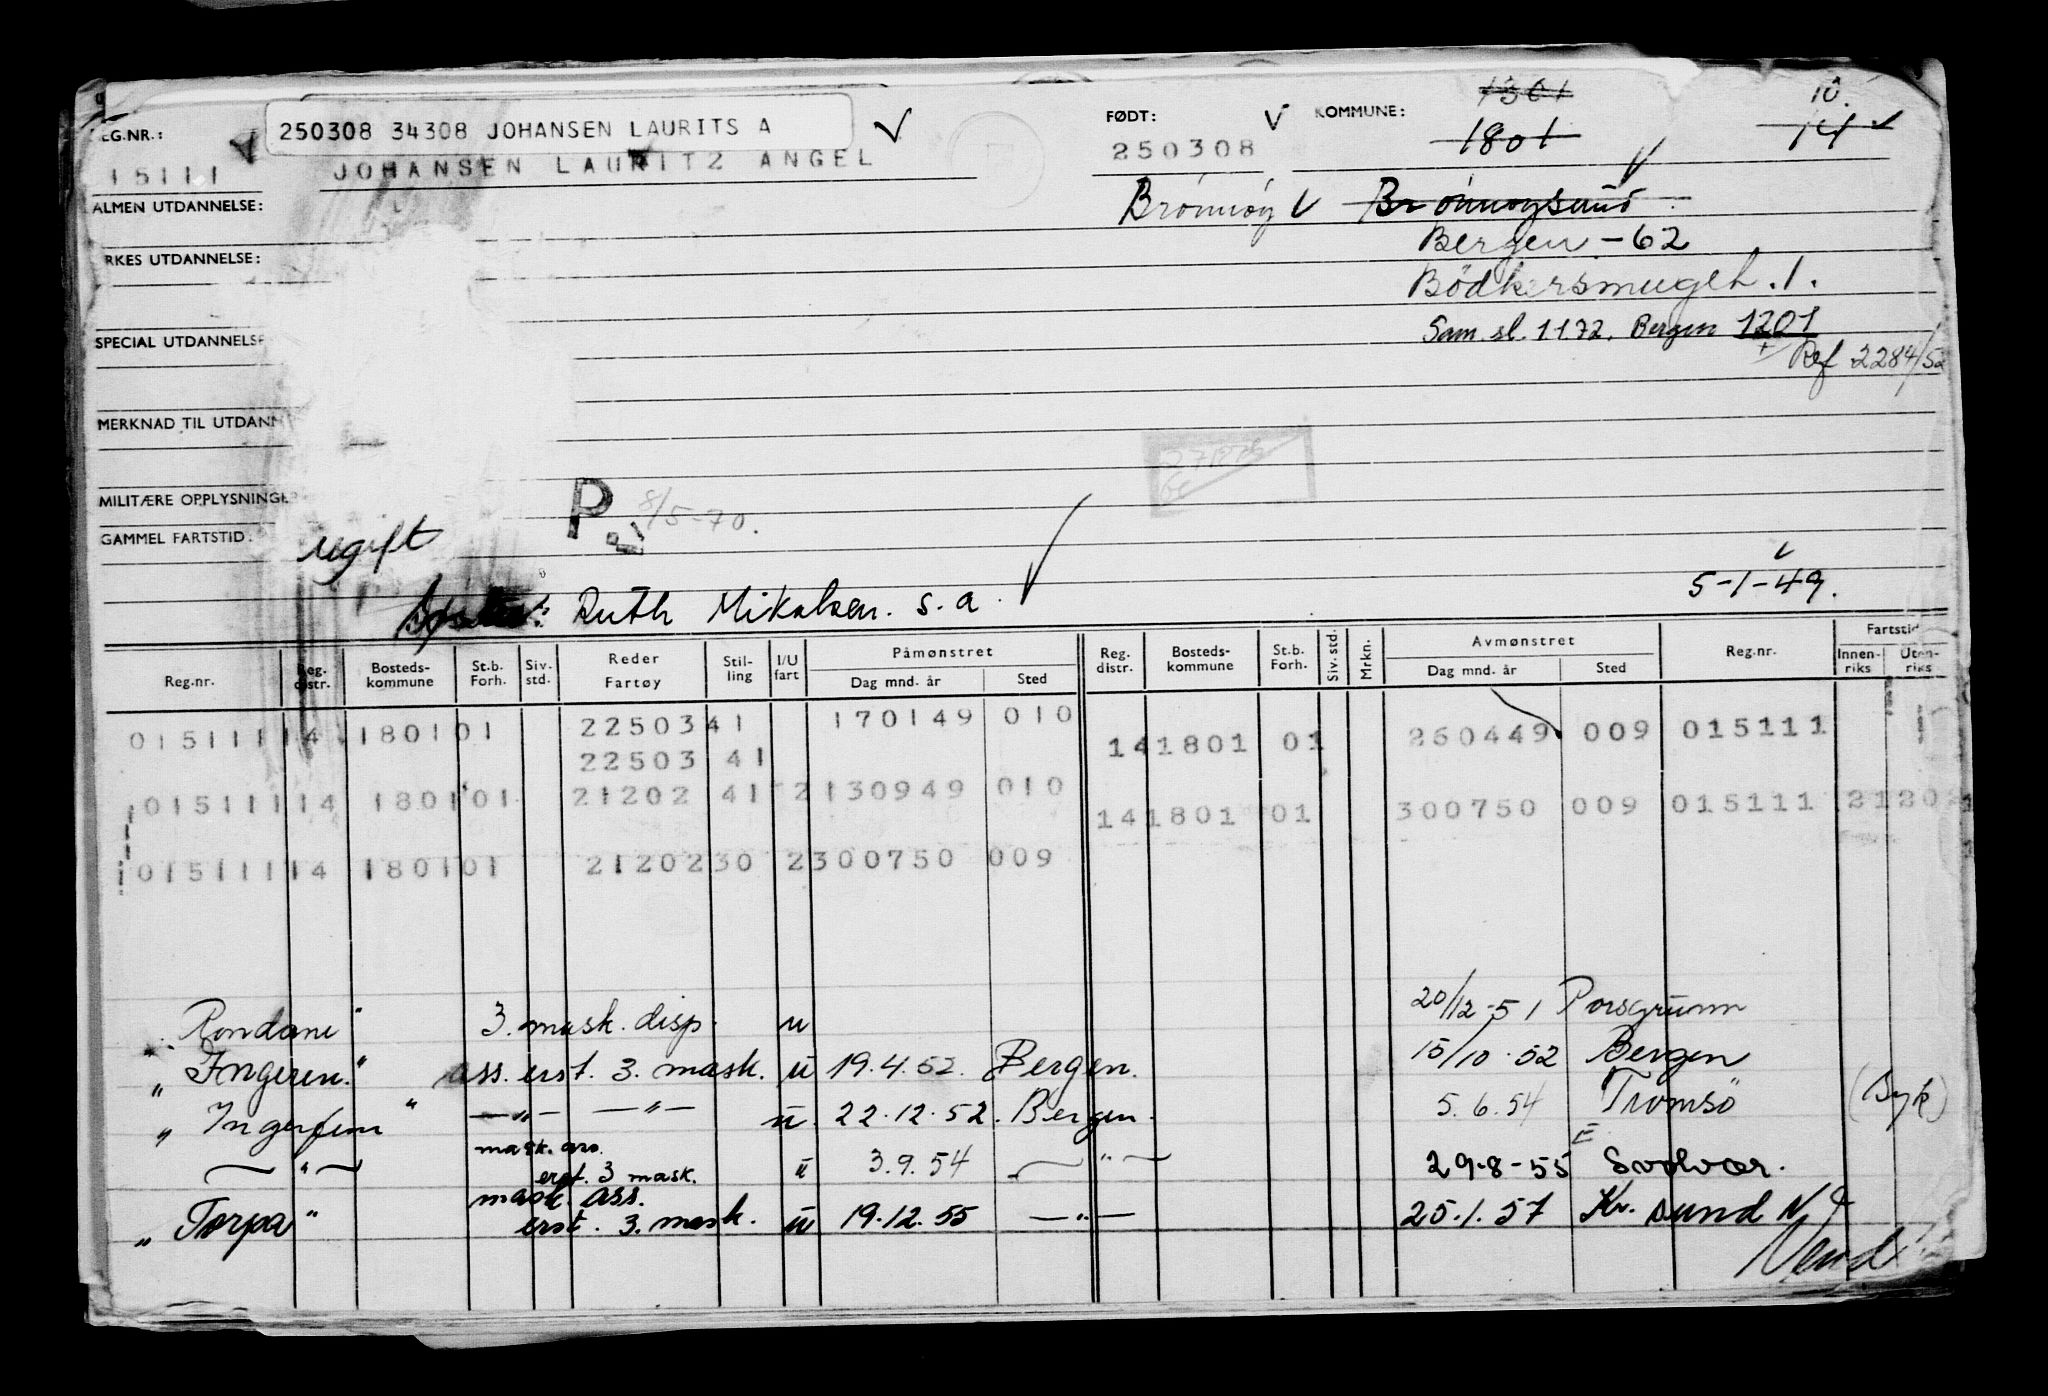 250308 34308 JOHANSEN LAURITS A
FØDT: KOMMUNE: 1301 10.
EG.NR.: 15111 JOHANSEN LAURITZ ANGEL 250308 1801 14
ALMEN UTDANNELSE: Brönnöy Brönnöysund
Bergen - 62
RKES UTDANNELSE:
Bödkersmuget. 1.
SPECIAL UTDANNELSE Sam. sl. 1172. Bergen 1201
Ref 2284/52
MERKNAD TIL UTDANN
MILITÆRE OPPLYSNINGER P 8/5-70.
GAMMEL FARTSTID.
ugift
Ruth Mikalsen. s. a. 5-1-49.
Reg.nr. Reg. distr. Bosteds- kommune St.b. Forh. Siv. std. Reder Fartøy Stil- ling I/U fart Påmønstret Dag mnd. år Sted Reg. distr. Bosteds- kommune St.b. Forh. Siv. std. Mrkn. Avmønstret Dag mnd. år Sted Reg.nr. Fartstid Innen- riks Uten- riks
015111 14 1801 01 22503 41 170149 010 14 1801 01 260449 009 015111
22503 41
015111 14 1801 01 21202 41 2 130949 010 14 1801 01 300750 009 015111 21202
015111 14 1801 01 21202 30 2 300750 009
„ Rondane " 3. mask. disp. u 20/12-51 Porsgrunn
„ Ingeren." ass. erst. 3. mask. u 19.4.52. Bergen. 15/10.52 Bergen
„ Ingerfem " — „ — — " — u. 22.12.52. Bergen. 5.6.54 Tromsö (Byk)
— " — mask. ass. erst. 3 mask. u 3.9.54 — " — 29-8-55 Svolvær.
„ Torpa " mask. ass. erst. 3. mask. u 19.12.55 — " — 25.1.57 Kr. sund N
Vend